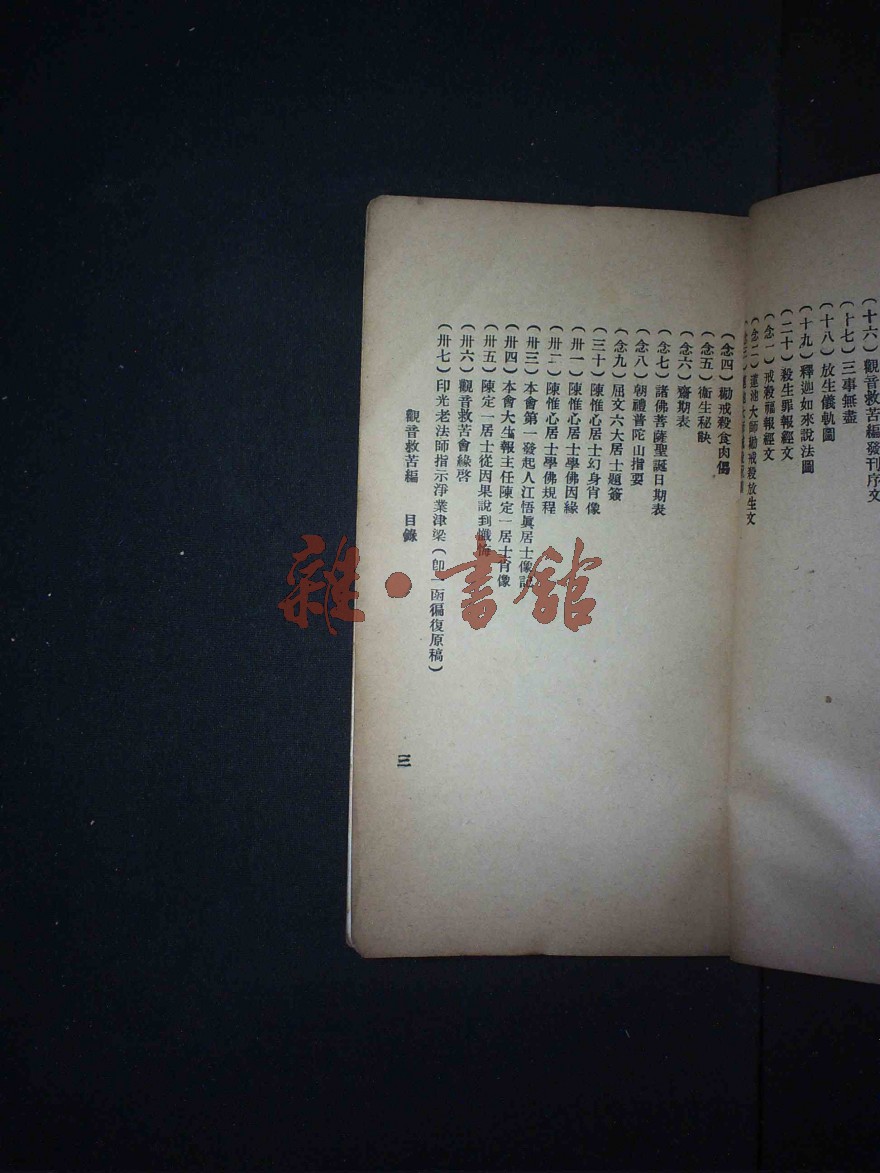 (十六)觀音救苦編發刊序文
(十七)三事無盡
(十八)放生儀軌圖
(十九)釋迦如來說法圖
(二十)殺生罪報經文
(念一)戒殺福報經文
(念二)蓮池大師勸戒殺放生文
(念四)勸戒殺食肉偈
(念五)衞生秘訣
(念六)齋期表
(念七)諸佛菩薩聖誕日期表
(念八)朝禮普陀山指要
(念九)屈文六大居士題簽
(三十)陳惟心居士幻身肖像
(卅一)陳惟心居士學佛因緣
(卅二)陳惟心居士學佛規程
(卅三)本會第一發起人江悟眞居士像記
(卅四)本會大生報主任陳定一居士肖像
(卅五)陳定一居士從因果說到懺悔
(卅六)觀音救苦會緣啓
(卅七)印光老法師指示淨業津梁(卽一函徧復原稿)
觀音救苦編 目錄
三
雜·書館